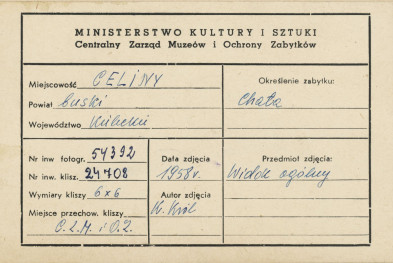 MINISTERSTWO KULTURY I SZTUKI
Centralny Zarząd Muzeów i Ochrony Zabytków
Miejscowość CELINY
Powiat buski
Województwo Kielecki
Określenie zabytku:
Chata
Nr inw fotogr. 54392
Nr inw. klisz. 24708
Wymiary kliszy 6x6
Miejsce przechow. kliszy
O.Z.M. i O.Z.
Data zdjęcia
1958 r.
Autor zdjęcia
K. Król
Przedmiot zdjęcia:
Widok ogólny